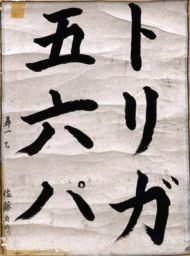 トリガ
五六パ
尋一乙
佐藤